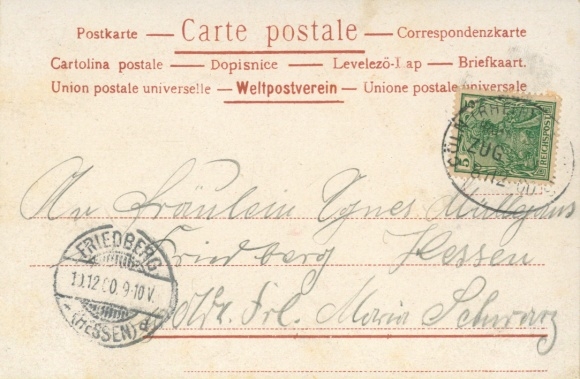 Postkarte — Carte postale — Correspondenzkarte
Cartolina postale — Dopisnice — Levelező-Lap — Briefkaart.
Union postale universelle — Weltpostverein — Unione postale universale
5 REICHSPOST 5
ZUG
An Fräulein Agnes
Friedberg Hessen
FRIEDBERG
10.12.00. 9-10 V.
(HESSEN)
Frl. Maria Schwarz